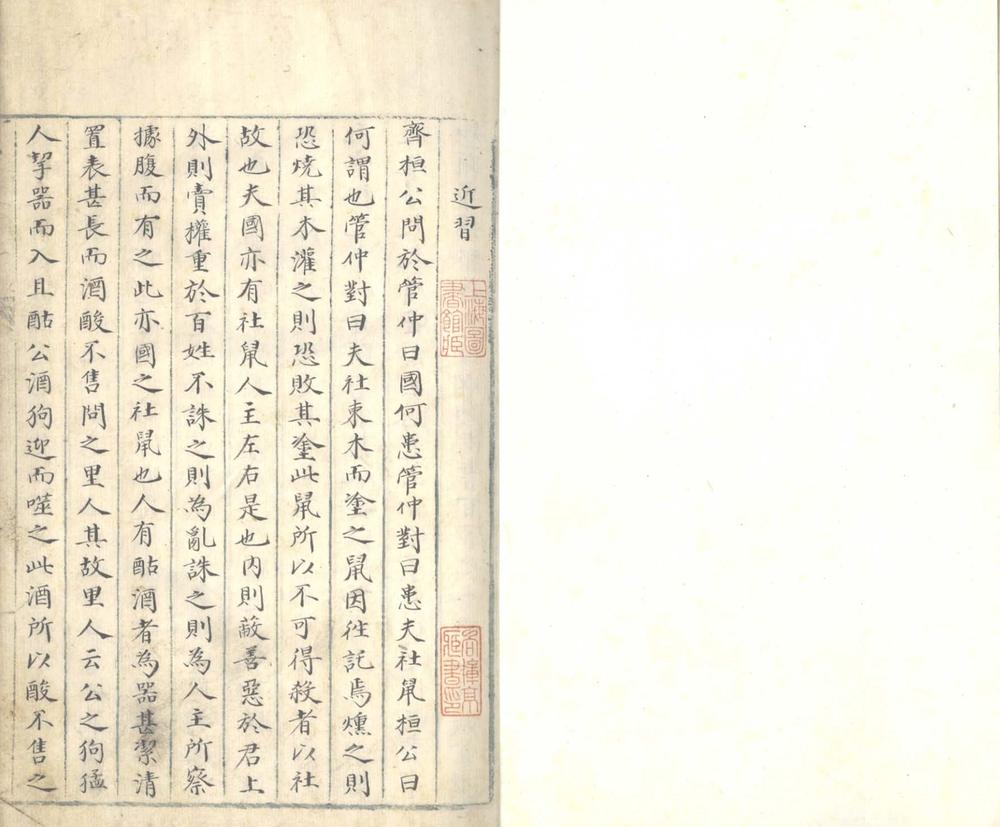 近習
齊桓公問於管仲曰國何患管仲對曰患夫社鼠桓公曰
何謂也管仲對曰夫社束木而塗之鼠因往託焉燻之則
恐燒其木灌之則恐敗其塗此鼠所以不可得殺者以社
故也夫國亦有社鼠人主左右是也內則蔽善惡於君上
外則賣權重於百姓不誅之則為亂誅之則為人主所察
據腹而有之此亦國之社鼠也人有酤酒者為器甚潔清
置表甚長而酒酸不售問之里人其故里人云公之狗猛
人挈器而入且酤公酒狗迎而噬之此酒所以酸不售之
上海圖
書館臧